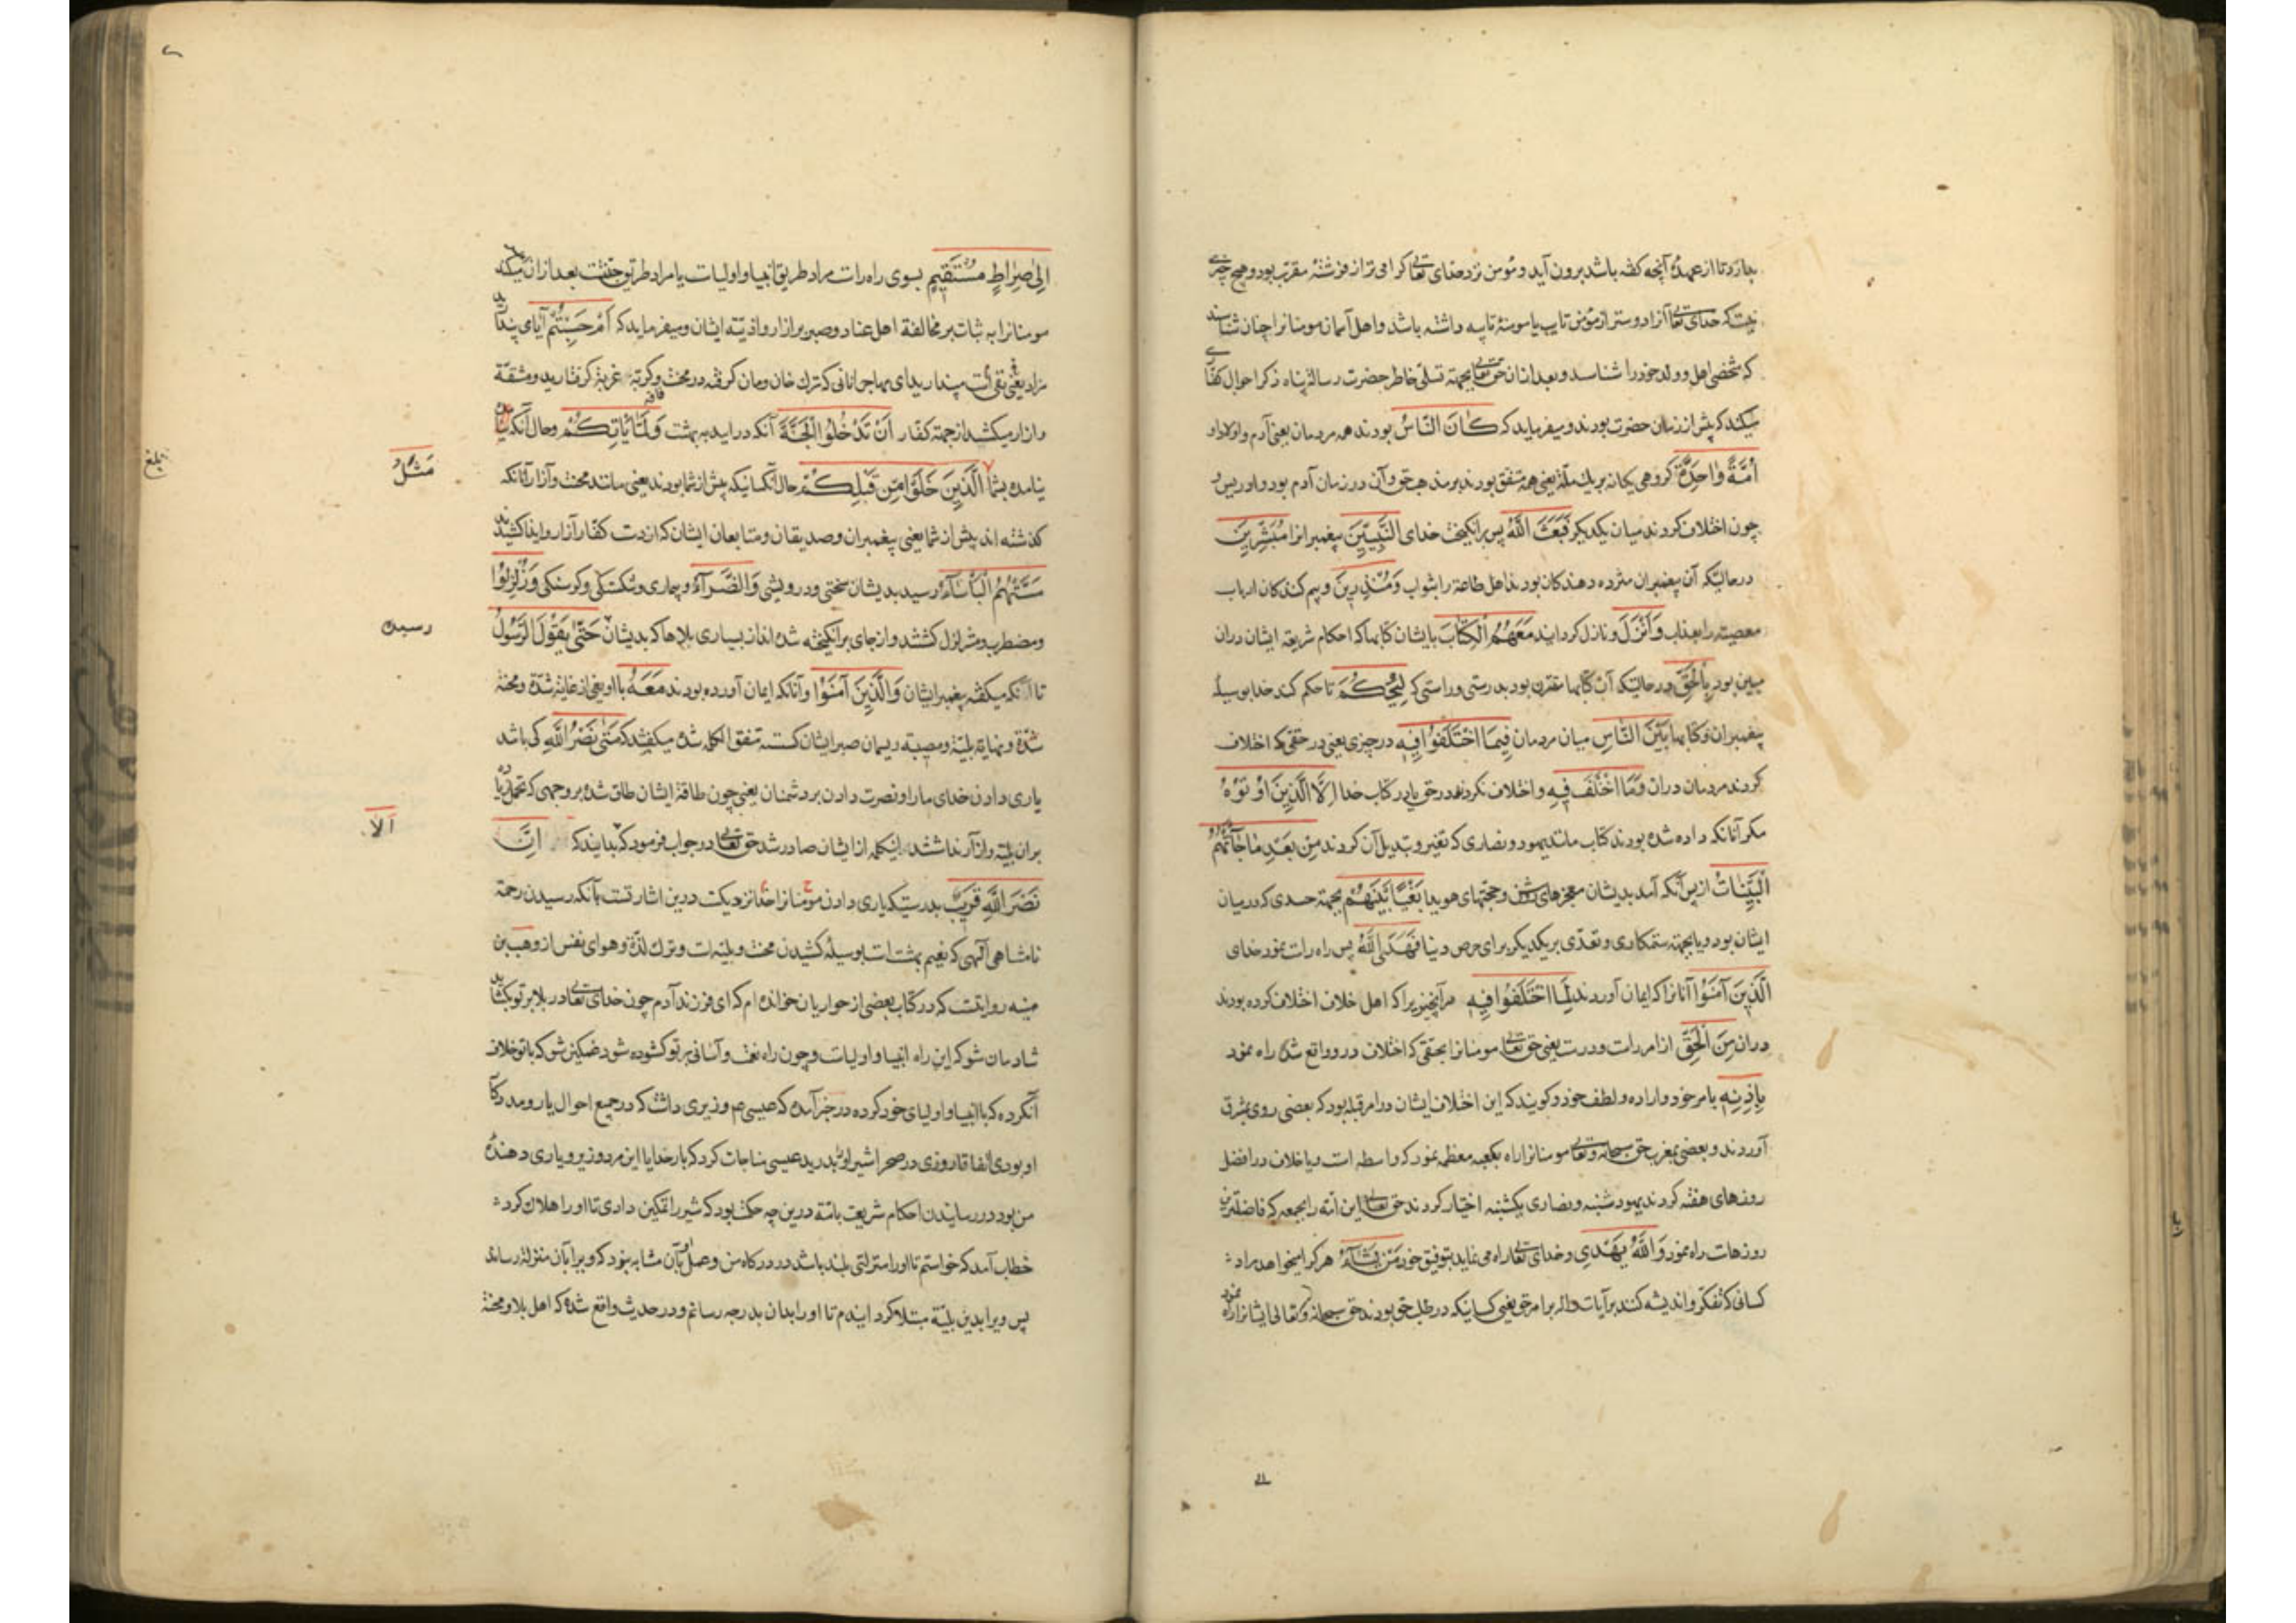 بیاز تا از عهدهٔ آنچه گفته باشد برون آید و مؤمن نزد خدای تعالی گرامی‌تر از فرشتهٔ مقرّب بود و هیچ چیزی
نیست که خدای تعالی آنرا دوستر از مؤمن تایب یا مومنهٔ تایبه داشته باشد و اهل آسمان مومنانرا چنان شناسند
که شخصی اهل و ولد خود را شناسد و بعد از آن حق تعالی بجهتهٔ تسلّی خاطر حضرت رسالة پناه ذکر احوال کفّا
میکند که پیش از زمان حضرت بودند و میفرماید که كَانَ النَّاسُ بودند همه مردمان یعنی آدم و اولاد او
أُمَّةً وَاحِدَةً گروهی یکانه بر یک ملّة یعنی همه متفق بودند بر مذهب حق و آن در زمان آدم بود و ادریس و
چون اختلاف کردند میان یکدیگر فَبَعَثَ اللَّهُ پس برانگیخت خدای النَّبِيِّينَ پیغمبرانرا مُبَشِّرِينَ
در حالتیکه آن پیغمبران مژده دهندگان بودند اهل طاعة را بثواب وَمُنْذِرِينَ و بیم کنندگان ارباب
معصیة را بعذاب وَأَنْزَلَ و نازل گردانید مَعَهُمُ الْكِتَابَ با ایشان کتابها که احکام شریعة ایشان دران
مبین بود بِالْحَقِّ در حالتیکه آن کتابها مقترن بود بدرستی و راستی که لِيَحْكُمَ تا حکم کند خدا بوسیلهٔ
پیغمبران و کتابها بَيْنَ النَّاسِ میان مردمان فِيمَا اخْتَلَفُوا فِيهِ در چیزی یعنی در حقّی که اختلاف
کردند مردمان دران وَمَا اخْتَلَفَ فِيهِ و اختلاف نکردند در حق یا در کتاب خدا إِلَّا الَّذِينَ أُوتُوهُ
مگر آنانکه داده شده بودند کتاب مانند یهود و نصاری که تغیر و تبدیل آن کردند مِنْ بَعْدِ مَا جَاءَتْهُمُ
الْبَيِّنَاتُ از پس آنکه آمد بدیشان معجزهای روشن و حجّتهای هویدا بَغْيًا بَيْنَهُمْ بجهتهٔ حسدی که در میان
ایشان بود و یا بجهتهٔ ستمکاری و تعدّی بر یکدیگر برای حرص دنیا فَهَدَى اللَّهُ پس راه راست نمود خدای
الَّذِينَ آمَنُوا آنانرا که ایمان آوردند لِمَا اخْتَلَفُوا فِيهِ مر آنچیز را که اهل خلاف اختلاف کرده بودند
دران مِنَ الْحَقِّ از امر راست و درست یعنی حق تعالی مومنانرا بحقّی که اختلاف درو واقع شده راه نمود
بِإِذْنِهِ بامر خود و اراده و لطف خود و گویند که این اختلاف ایشان در امر قبله بود که بعضی روی بشرق
آوردند و بعضی بمغرب حق سبحانه و تعالی مومنانرا راه بکعبه معظمه نمود که واسطه است و یا خلاف در افضل
روزهای هفته کردند یهود شنبه و نصاری یکشنبه اختیار کردند حق تعالی این امّة را بجمعه که فاضلترین
روزهاست راه نمود وَاللَّهُ يَهْدِي و خدای تعالی راه می‌نماید بتوفیق خود مَنْ يَشَاءُ هر کرا میخواهد مراد
کسانی که تفکّر و اندیشه کنند بر آیات داله بر امر حق یعنی کسانیکه در طلب حق بودند حق سبحانه و تعالی ایشانرا راه نمود
إِلَى صِرَاطٍ مُسْتَقِيمٍ بسوی راه راست مراد طریق انبیا و اولیاست یا مراد طریق جنّتست بعد از آن میکند
مومنانرا به ثبات بر مخالفة اهل عناد و صبر بر آزار و اذیّتهٔ ایشان و میفرماید که أَمْ حَسِبْتُمْ آیا می‌پندا
مراد یعنی نفی است پندارید ای مهاجرانانی که ترک خان و مان کرده در محنت و کربة غربة گرفتارید و مشقة
و آزار میکشید از جهة کفار أَنْ تَدْخُلُوا الْجَنَّةَ آنکه در آیید به بهشت وَلَمَّا يَأْتِكُمْ و حال آنکه
نیامده بشما الَّذِينَ خَلَوْا مِنْ قَبْلِكُمْ حال آنکسانیکه پیش از شما بودند یعنی مانند محنت و آزار آنانکه
مَثَلُ
بلغ
گذشته اند پیش از شما یعنی پیغمبران و صدیقان و متابعان ایشان که از دست کفّار آزار و ایذا کشیدند
مَسَّتْهُمُ الْبَأْسَاءُ رسید بدیشان سختی و درویشی وَالضَّرَّاءُ و بیماری و شکستگی و گرسنگی وَزُلْزِلُوا
و مضطرب و متزلزل کشتند و از جای برانگیخته شده‌اند از بسیاری بلاها که بدیشان حَتَّى يَقُولَ الرَّسُولُ
رسید
تا آنکه میگفت پیغمبر ایشان وَالَّذِينَ آمَنُوا و آنانکه ایمان آورده بودند مَعَهُ با او یعنی از غایة شدّة و محنة
شدّة و نهایة بلیّة و مصیبة ریسمان صبر ایشان کسسته متفق الکلمه شده میگفتند که مَتَى نَصْرُ اللَّهِ کی باشد
یاری دادن خدای ما را و نصرت دادن بر دشمنان یعنی چون طاقة ایشان طاق شده بر وجهی که تحمل
بران بلیّة و آزار نداشتند اینکلمه از ایشان صادر شد حق تعالی در جواب فرمود که بدانید که إِنَّ
أَلَا
نَصْرَ اللَّهِ قَرِيبٌ بدرستیکه یاری دادن مومنانرا خدا نزدیکست درین اشارتست بآنکه رسیدن رحمة
نامتناهی الهی که نعیم بهشت است بوسیلهٔ کشیدن محنت و بلیّه است و ترک لذّة و هوای نفس از وهب بن
منبه روایتست که در کتاب بعضی از حواریان خوانده‌ام که ای فرزند آدم چون خدای تعالی در بلا بر تو بکشاید
شادمان شو که این راه انبیا و اولیاست و چون راه نعمت و آسانی بر تو کشوده شود غمگین شو که با تو خلاف
آنکرده که با انبیا و اولیای خود کرده در خبر آمده که عیسی ع م وزیری داشت که در جمیع احوال یار و مددکا
او بودی اتفاقا روزی در صحرا شیر او را بدرید عیسی مناجات کرد که بار خدایا این مرد وزیر و یاری دهندهٔ
من بود در رسانیدن احکام شریعت بامّة درین چه حکمت بود که شیر را تمکین دادی تا او را هلاک کرد
خطاب آمد که خواستم تا او را منزلتی بلند باشد در درگاه من و عمل او بآن مثابه نبود که ویرا بآن منزلة رساند
پس ویرا بدین بلیّة مبتلا گردانیدم تا او را بدان بدرجه رسانم و در حدیث واقع شده که اهل بلا و محنة